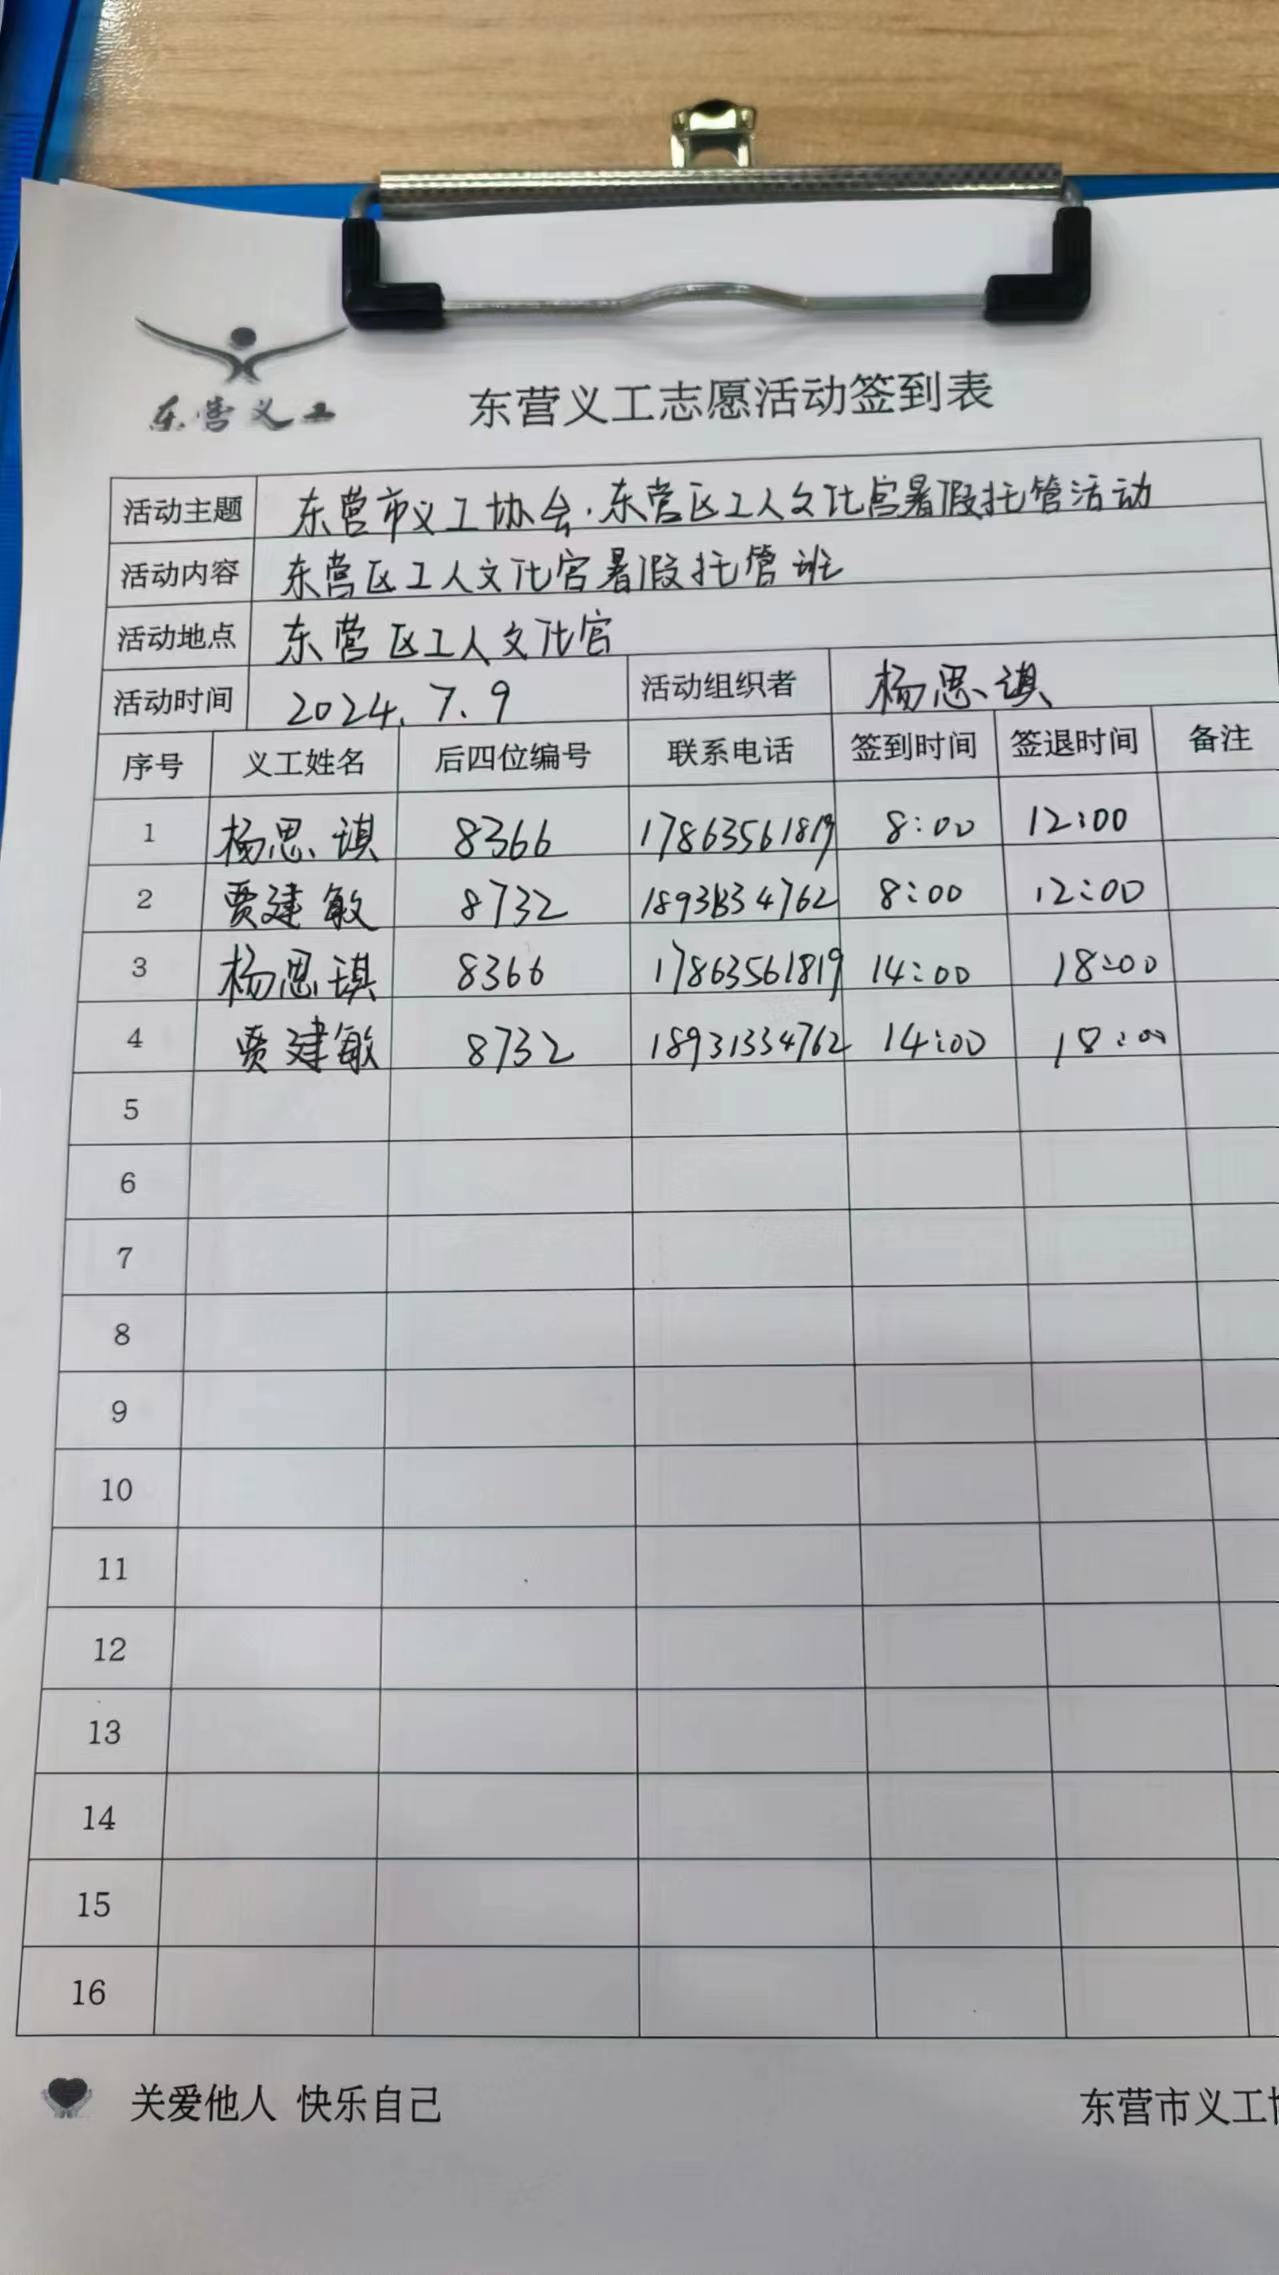 东营义工
东营义工志愿活动签到表
活动主题 东营市义工协会·东营区工人文化宫暑假托管活动
活动内容 东营区工人文化宫暑假托管班
活动地点 东营区工人文化宫
活动时间 2024.7.9 活动组织者 杨思琪
序号 义工姓名 后四位编号 联系电话 签到时间 签退时间 备注
1 杨思琪 8366 17863561819 8:00 12:00
2 贾建敏 8732 18931334762 8:00 12:00
3 杨思琪 8366 17863561819 14:00 18:00
4 贾建敏 8732 18931334762 14:00 18:00
5
6
7
8
9
10
11
12
13
14
15
16
关爱他人 快乐自己 东营市义工